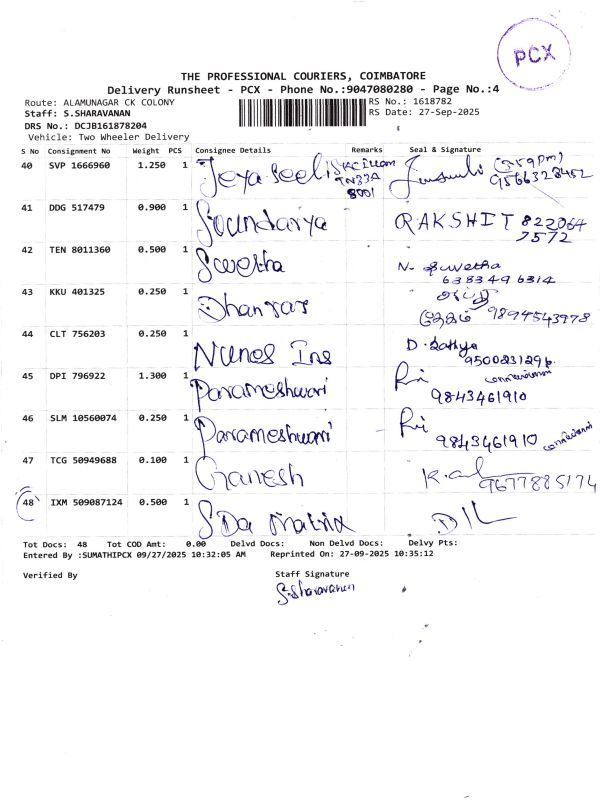 PCX
THE PROFESSIONAL COURIERS, COIMBATORE
Delivery Runsheet - PCX - Phone No.:9047080280 - Page No.:4
Route: ALAMUNAGAR CK COLONY
RS No.: 1618782
Staff: S.SHARAVANAN
RS Date: 27-Sep-2025
DRS No.: DCJB161878204
Vehicle: Two Wheeler Delivery
S No Consignment No Weight PCS Consignee Details Remarks Seal & Signature
40 SVP 1666960 1.250 1 Jeya Seeli
TN33A
8001
9566328452
41 DDG 517479 0.900 1 Soundarya RAKSHIT 822064
7572
42 TEN 8011360 0.500 1 Swetha N. Suwetha
6383496314
43 KKU 401325 0.250 1 Dhanraj
9894543978
44 CLT 756203 0.250 1 Nunes Ins D. Sathya
9500831296
45 DPI 796922 1.300 1 Parameshwari
9843461910
46 SLM 10560074 0.250 1 Parameshwari
9843461910
47 TCG 50949688 0.100 1 Ganesh
9677885174
48 IXM 509087124 0.500 1 S Da Matrix
Tot Docs: 48 Tot COD Amt: 0.00 Delvd Docs: Non Delvd Docs: Delvy Pts:
Entered By :SUMATHIPCX 09/27/2025 10:32:05 AM Reprinted On: 27-09-2025 10:35:12
Verified By Staff Signature
S. Sharavanan